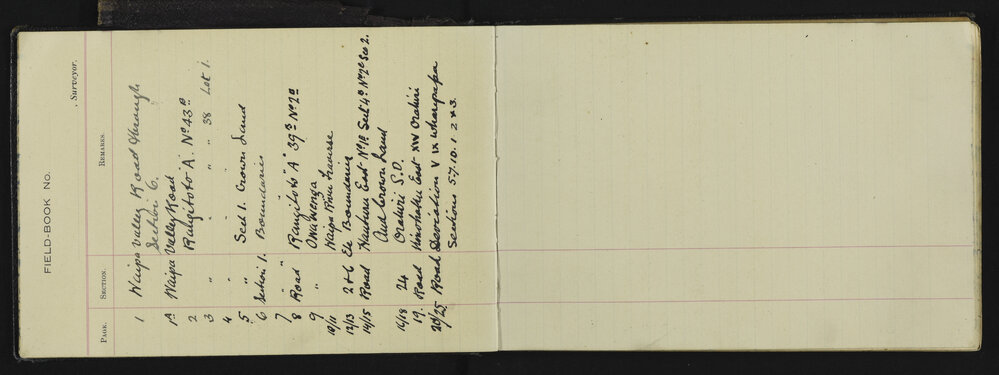 FIELD-BOOK No.
, Surveyor.
PAGE. SECTION. REMARKS.
1 Waipa Valley Road through
Section 6.
1A Waipa Valley Road
2 Rangitoto "A" No 43B
3 " " " " 38 Lot 1.
4 "
5 " Sect 1. Crown Land
6 Section 1. Boundaries
7 " "
8 Road Rangitoto "A" 39B No 2B
9 " Onawenga
10/11 Waipa River Traverse
12/13 2+6 Etc Boundaries
14/15 Road Hauturu East No 1B Sect 4B No 2B Sec 2.
And Crown Land
16/18 24 Orahiri S.D.
19. Road Kinohaku East XIV Orahiri
20/25 Road Deviation V IX Wharepapa
Sections 5.7.10. 1 2 & 3.